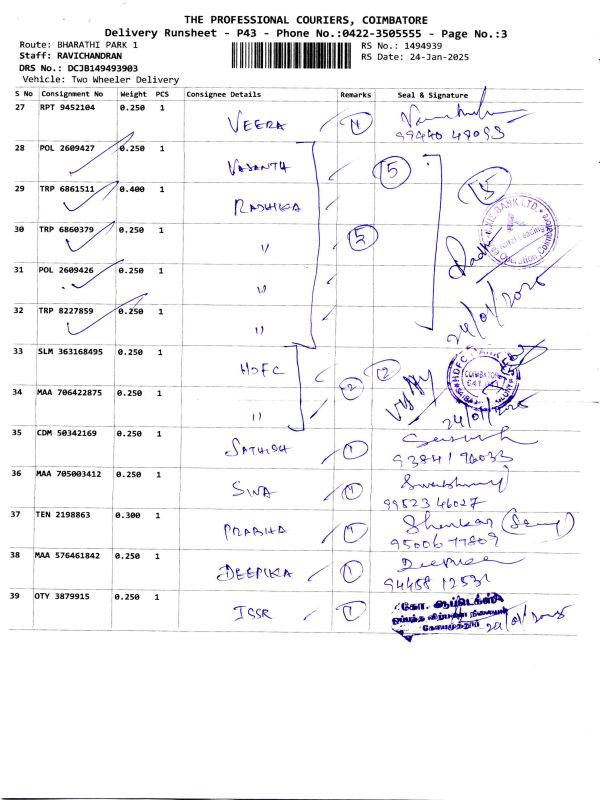 THE PROFESSIONAL COURIERS, COIMBATORE
Delivery Runsheet - P43 - Phone No.:0422-3505555 - Page No.:3
Route: BHARATHI PARK 1
RS No.: 1494939
Staff: RAVICHANDRAN
RS Date: 24-Jan-2025
DRS No.: DCJB149493903
Vehicle: Two Wheeler Delivery
S No Consignment No Weight PCS Consignee Details Remarks Seal & Signature
27 RPT 9452104 0.250 1 VEERA 1
99440 49093
28 POL 2609427 0.250 1 VASANTH 5
29 TRP 6861511 0.400 1 RADHIKA
30 TRP 6860379 0.250 1 " 5
31 POL 2609426 0.250 1 "
32 TRP 8227859 0.250 1 "
24/01/2025
33 SLM 363168495 0.250 1 HDFC 2
HDFC BANK
COIMBATORE
34 MAA 706422875 0.250 1 " 2
24/01/2025
35 CDM 50342169 0.250 1 SATHISH 1
93841 96033
36 MAA 705003412 0.250 1 SIVA 1
99523 46027
37 TEN 2198863 0.300 1 PRABHA 1
Shankar
95006 77809
38 MAA 576461842 0.250 1 DEEPIKA 1
Deepika
94458 12531
39 OTY 3879915 0.250 1 ISSR 1
கோ. ஆப்டெக்ஸ்
24/01/2025